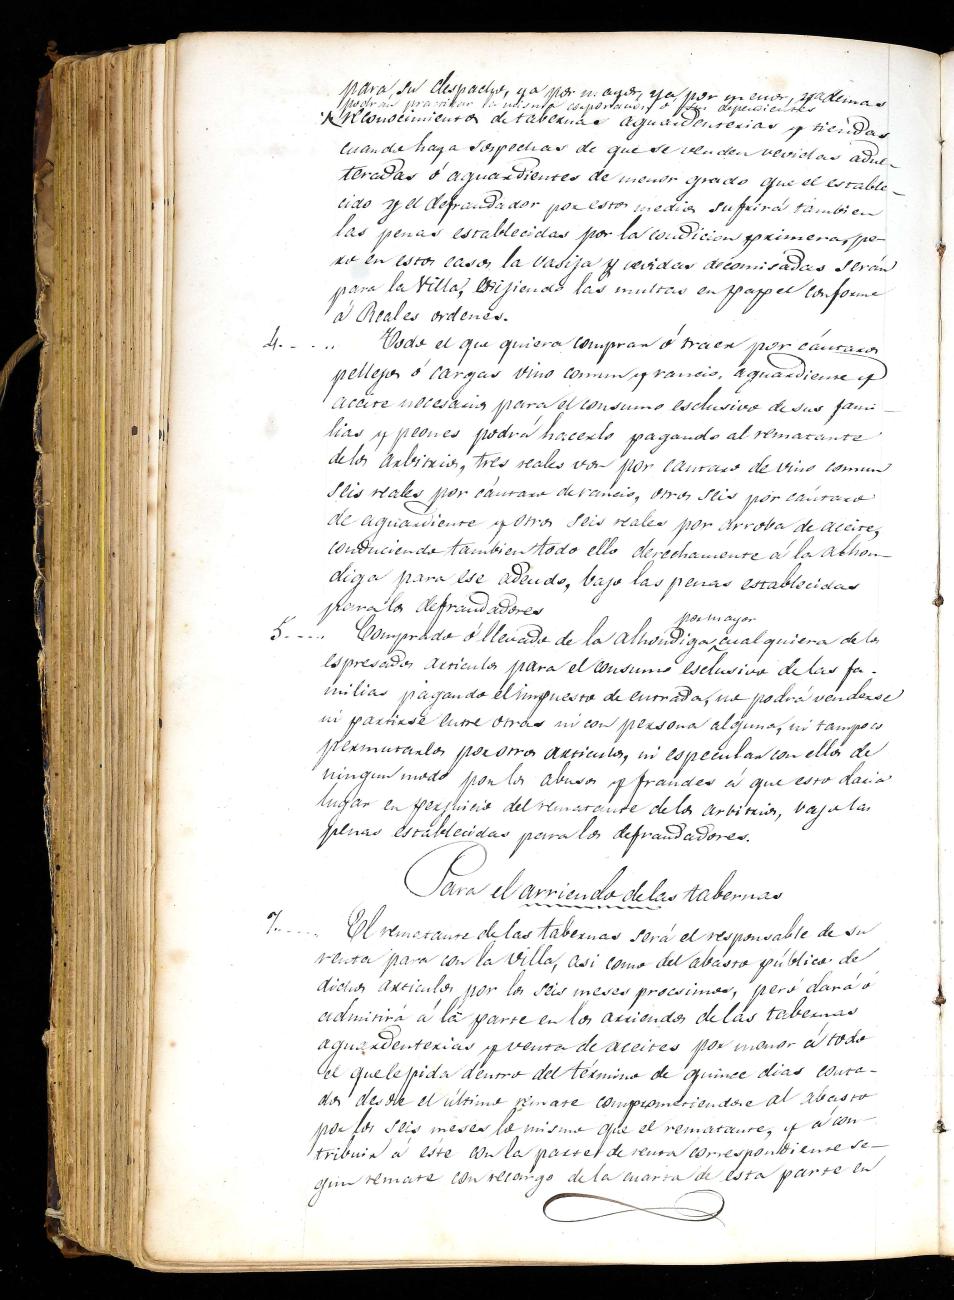 para su despacho, ya por mayor, ya por menor, y ademas
podrán practicar la misma corporacion ó sus dependientes
reconocimientos de tabernas aguardenterias y tiendas
cuando haya sospechas de que se venden vevidas adul-
teradas ó aguardientes de menor grado que el estable-
cido y el defraudador por estos medios sufrirá tambien
las penas establecidas por la condicion primera, pe-
ro en estos casos la vasija y vevidas decomisadas serán
para la Villa, exijiendo las multas en papel conforme
á Reales ordenes.
4. Todo el que quiera comprar ó traer por cántaros
pellejos ó cargas vino comun y rancio, aguardiente y
aceite necesarios para el consumo esclusivo de sus fami-
lias y peones podrá hacerlo pagando al rematante
de los arbitrios, tres reales von por cantaro de vino comun
seis reales por cántaro de rancio, otros seis por cántaro
de aguardiente y otros seis reales por arroba de aceite,
conduciendo tambien todo ello derechamente á la alhon-
diga para ese adeudo, bajo las penas establecidas
para los defraudadores
5. Comprado ó llevado de la alhondiga por mayor cualquiera de los
espresados articulos para el consumo esclusivo de las fa-
milias pagando el impuesto de entrada, no podrá venderse
ni partirse entre otras ni con persona alguna, ni tampoco
permutarlos por otros articulos, ni especular con ellos de
ningun modo por los abusos y fraudes á que esto daria
lugar en perjuicio del rematante de los arbitrios, bajo las
penas establecidas para los defraudadores.
Para el arriendo de las tabernas
7. El rematante de las tabernas será el responsable de su
renta para con la villa, asi como del abasto público de
dichos articulos por los seis meses procsimos, peró dará ó
admitirá á la parte en los arriendos de las tabernas
aguardenterias y venta de aceites por menor á todo
el que le pida dentro del término de quince dias conta-
dos desde el último remate comprometiendose al abasto
por los seis meses lo mismo que el rematante, y á con-
tribuir á éste con la parte de renta correspondiente se-
gun remate con recargo de la cuarta de esta parte en